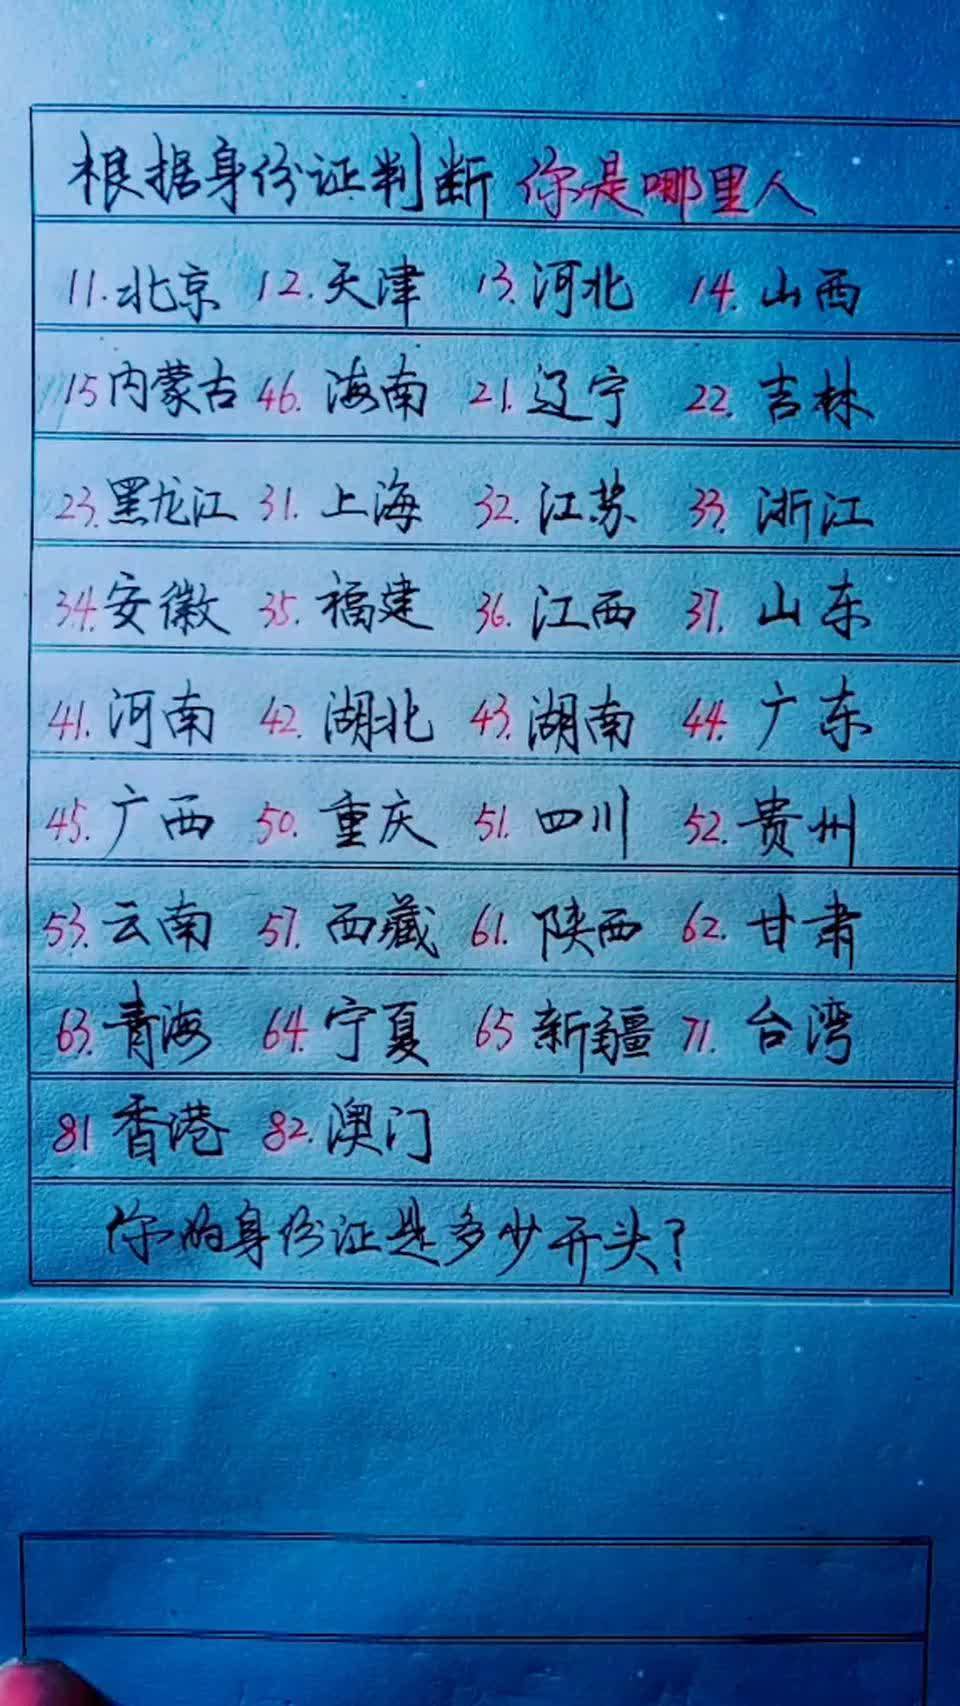 根据身份证判断 你是哪里人
11.北京 12.天津 13.河北 14.山西
15内蒙古 46.海南 21.辽宁 22.吉林
23.黑龙江 31.上海 32.江苏 33.浙江
34.安徽 35.福建 36.江西 37.山东
41.河南 42.湖北 43.湖南 44.广东
45.广西 50.重庆 51.四川 52.贵州
53.云南 57.西藏 61.陕西 62.甘肃
63.青海 64.宁夏 65新疆 71.台湾
81香港 82.澳门
你的身份证是多少开头?